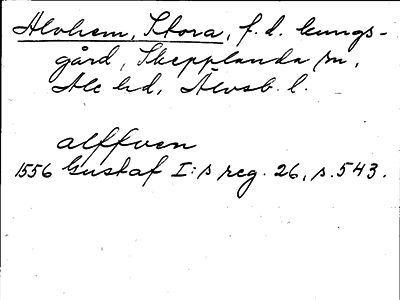 Alvhem, Stora, f. d. kungs-
gård, Skepplanda sn,
Ale hd, Älvsb. l.
alffven
1556 Gustaf I:s reg. 26, s. 543.